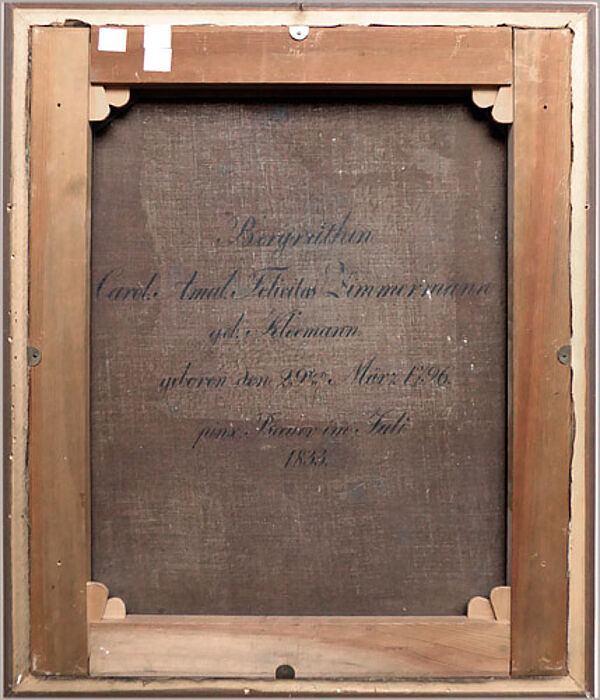 Bergräthin
Carol. Amal. Felicitas Zimmermann
geb. Kleemann
geboren den 29ten März 1796.
pinx. im Juli
1833.